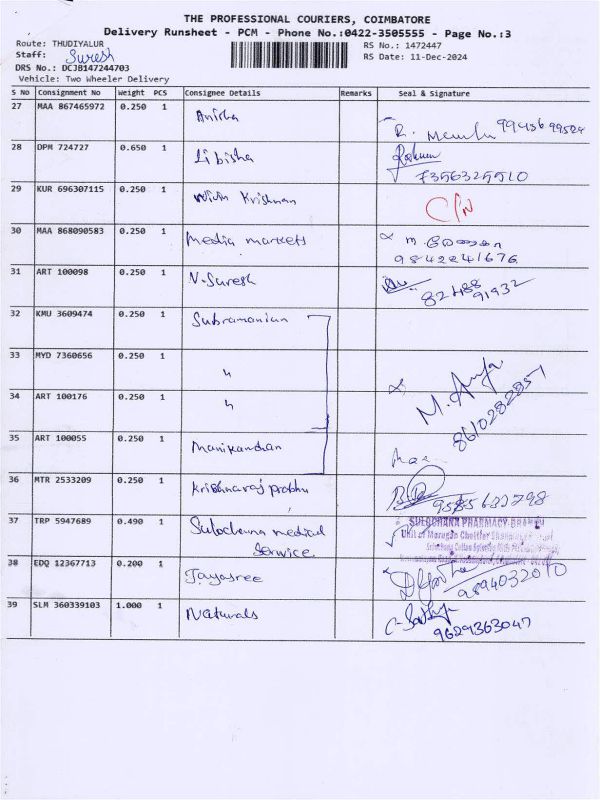 THE PROFESSIONAL COURIERS, COIMBATORE
Delivery Runsheet - PCM - Phone No.:0422-3505555 - Page No.:3
Route: THUDIYALUR
RS No.: 1472447
Staff: Suresh
RS Date: 11-Dec-2024
DRS No.: DCJB147244703
Vehicle: Two Wheeler Delivery
S No Consignment No Weight PCS Consignee Details Remarks Seal & Signature
27 MAA 867465972 0.250 1 Anisha
28 DPM 724727 0.650 1 Libisha
7356325510
29 KUR 696307115 0.250 1 Krishnan C/N
30 MAA 868090583 0.250 1 Media markets
9842241676
31 ART 100098 0.250 1 N.Suresh
82488
91932
32 KMU 3609474 0.250 1 Subramanian
33 MYD 7360656 0.250 1 "
34 ART 100176 0.250 1 "
M. Anuja
8610282857
35 ART 100055 0.250 1 Manikandan
36 MTR 2533209 0.250 1 Krishnaraj prabhu
37 TRP 5947689 0.490 1 Sulochana medical
Service
SULOCHANA PHARMACY
38 EDQ 12367713 0.200 1 Jayasree
9894032010
39 SLM 360339103 1.000 1 Naturals
9629363047